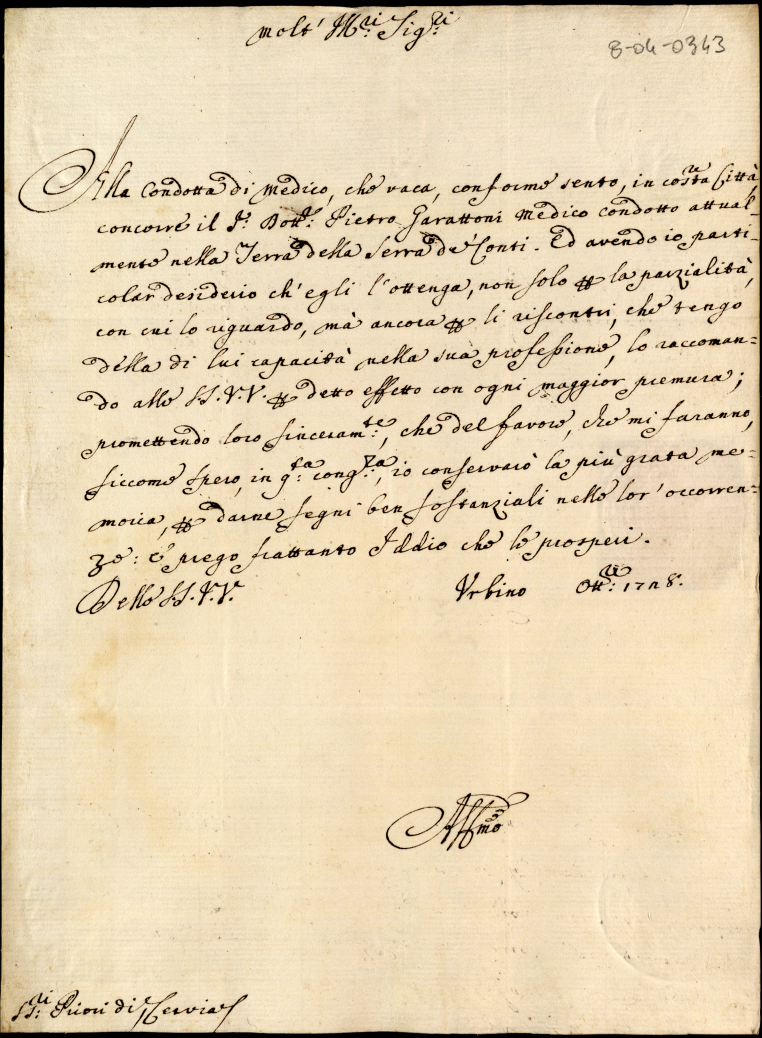 Molt' Ill.ri Sig.ri
8-04-0343
Alla Condotta di Medico, che vaca, conforme sento, in cotesta Città
concorre il S.r Dott.r Pietro Garattoni Medico condotto attual-
mente nella Terra della Serra de' Conti. Ed avendo io parti-
colar desiderio ch'egli l'ottenga, non solo per la parzialità,
con cui lo riguardo, mà ancora per li riscontri, che tengo
della di lui capacità nella sua professione, lo raccoman-
do alle SS.VV. per detto effetto con ogni maggior premura;
promettendo loro sinceram.te, che del favore, che mi faranno,
siccome spero, in q.ta cong.za, io conservarò la più grata me-
moria, per darne segni ben sostanziali nelle lor' occorren-
ze: e prego frattanto Iddio che le prosperi.
Delle SS.VV.
Urbino Ott.re 1728.
Aff.mo
SS.ri Priori di Cervia